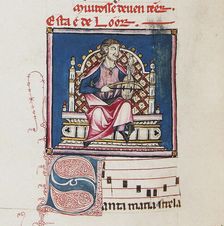 muitosse deuen tẽer
Esta é de Loor.
Santa maria strela